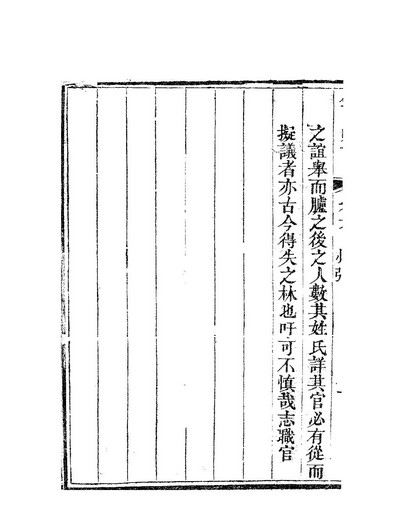 之誼舉而臚之後之人數其姓氏詳其官必有從而
擬議者亦古今得失之林也吁可不慎哉志職官